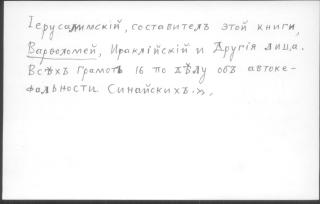 Іерусалимскій, составитель этой книги,
Варѳоломей, Ираклійскій и другія лица.
Всѣхъ грамотъ 16 по дѣлу объ автоке-
фальности Синайскихъ.».